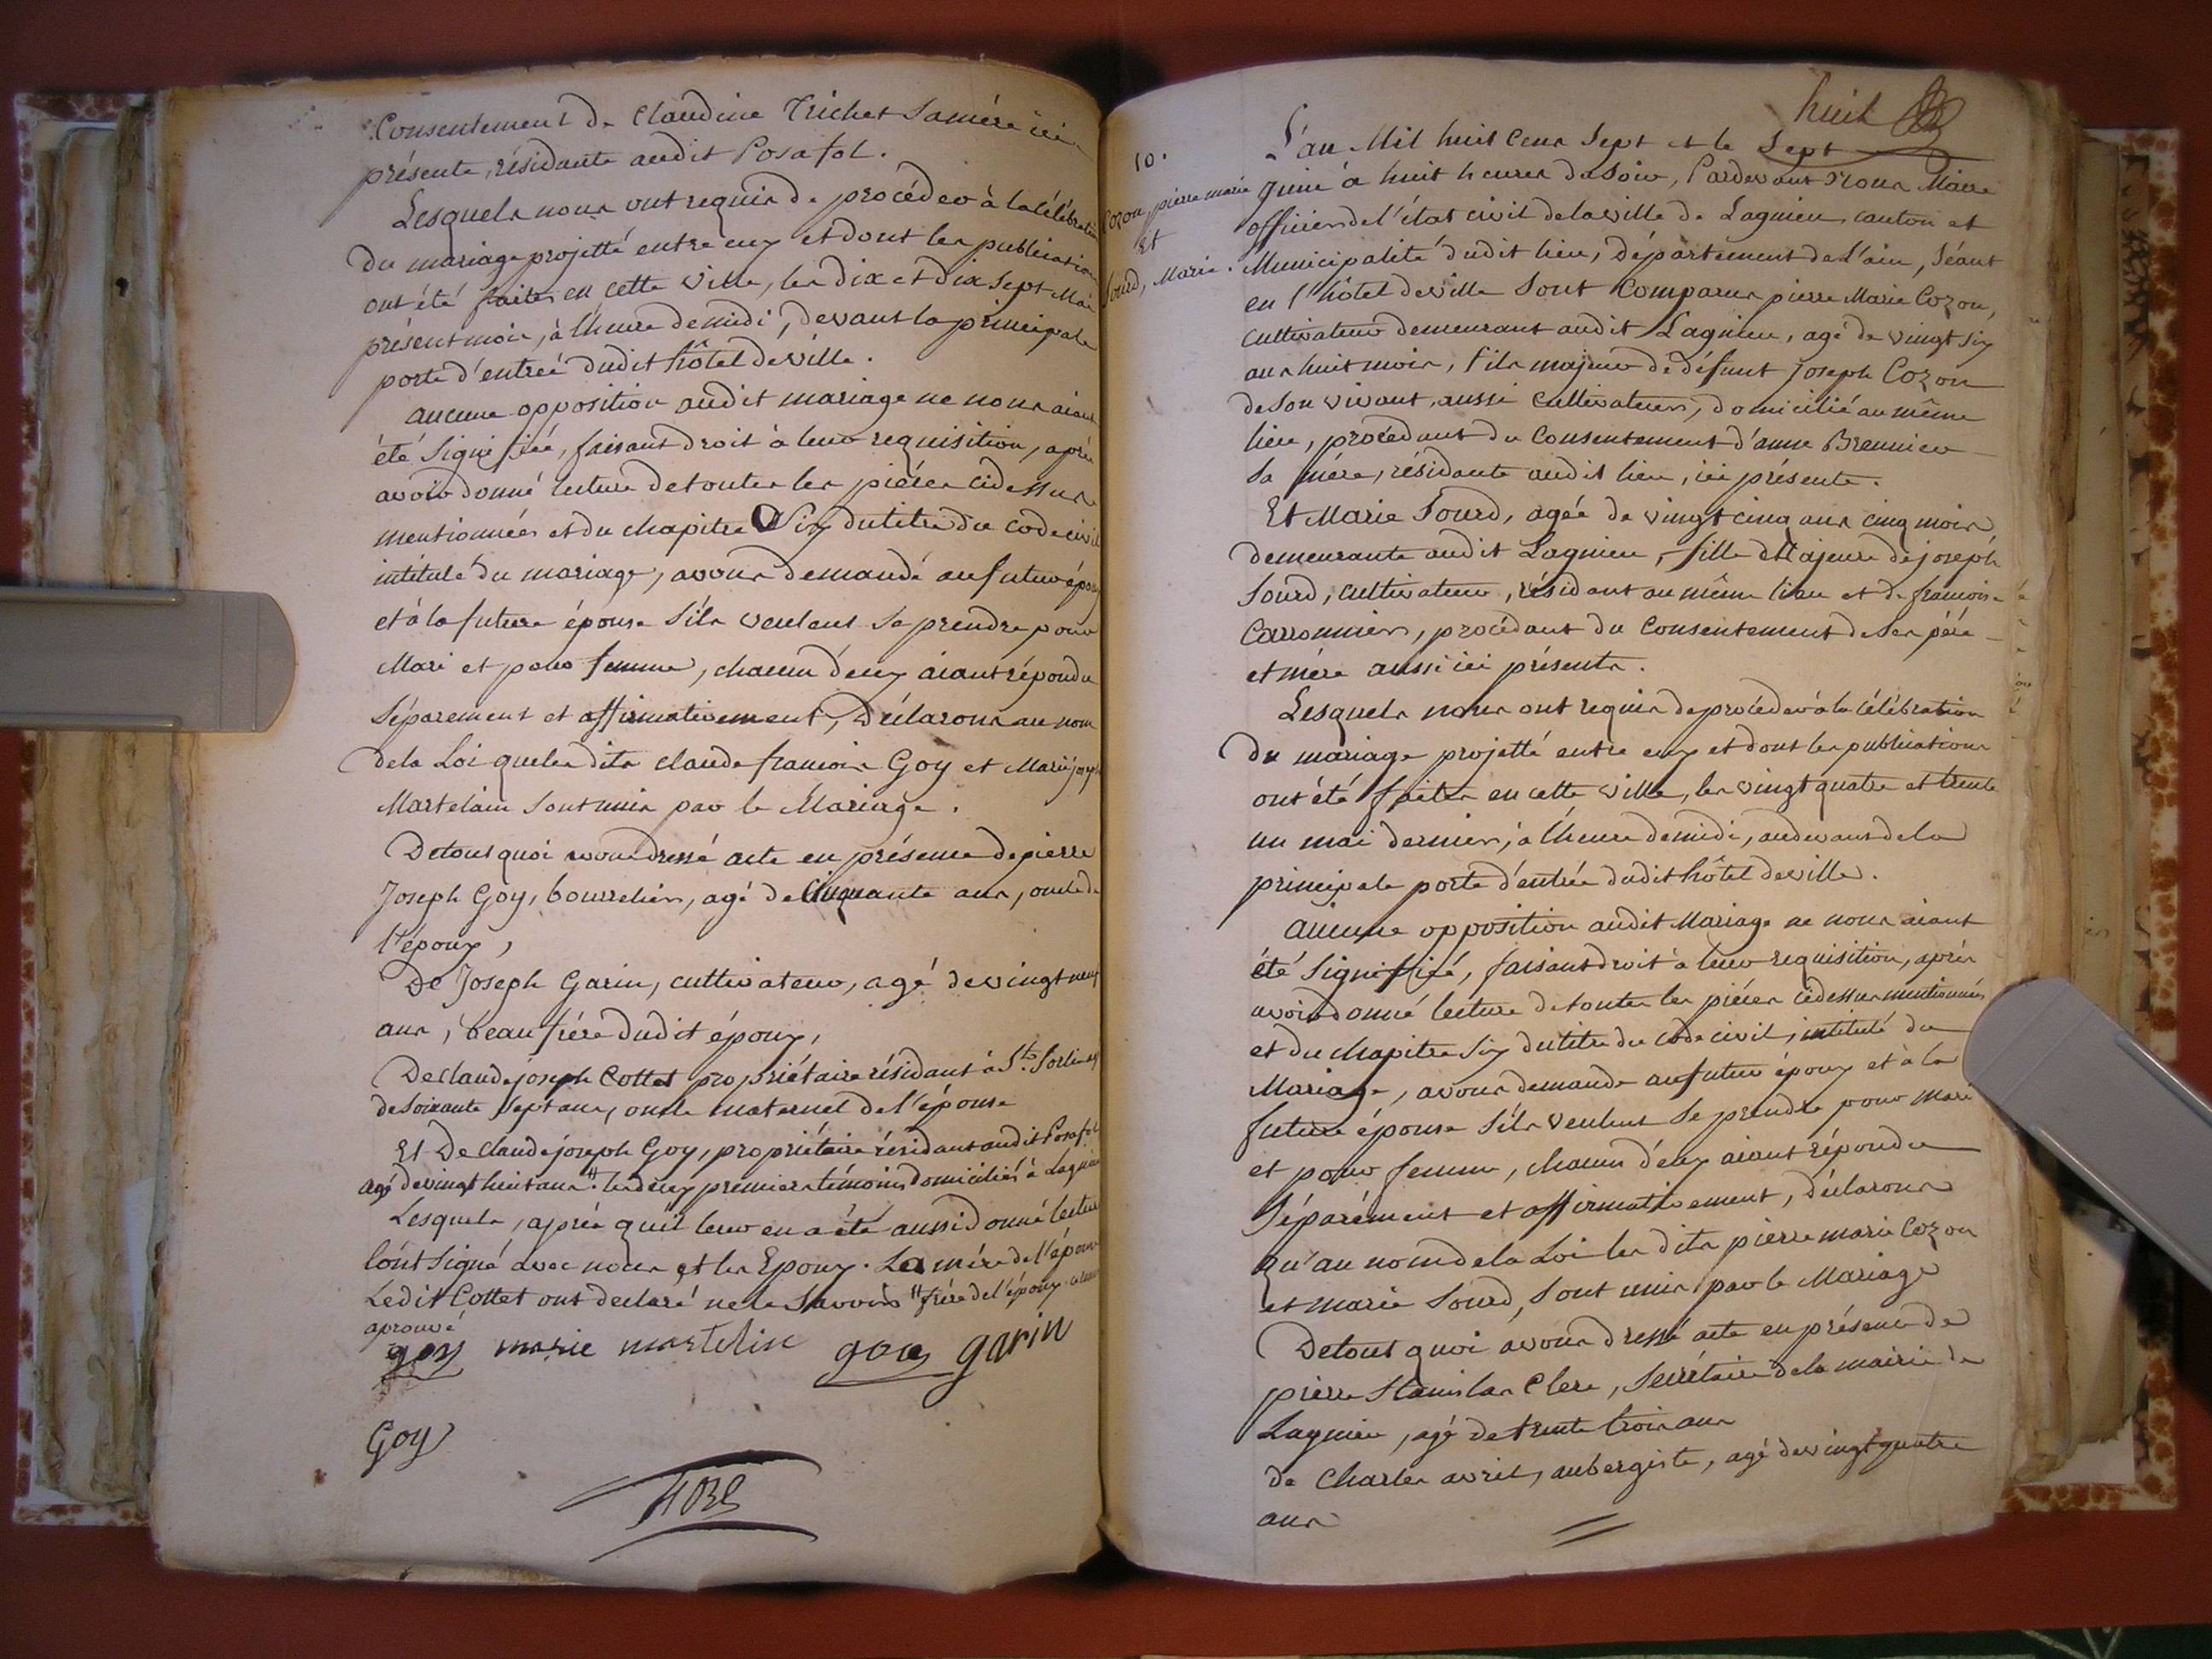 Consentement de Claudine Trichet sa mére ici
présente, résidante audit Posafol.
Lesquels nous ont requis de procéder à la célébration
du mariage projetté entre eux et dont les publications
ont été faites en cette ville, les dix et dix sept Mai
présent mois, à l'heure de midi, devant la principale
porte d'entrée dudit hôtel de ville.
aucune opposition audit mariage ne nous aiant
été signifiée, faisant droit à leur requisition, après
avoir donné lecture de toutes les piéces cidessus
mentionnées et du chapitre Six du titre du code civil
intitulé du mariage, avons demandé au futur époux
et à la future épouse s'ils veulent se prendre pour
Mari et pour femme, chacun d'eux aiant répondu
séparement et affirmativement, Déclarons au nom
de la Loi que les dits claude francois Goy et Marie joseph
Martelain sont unis par le Mariage.
De tout quoi avons dressé acte en présence de pierre
Joseph Goy, bourrelier, agé de Cinquante ans, oncle de
l'époux,
De Joseph Garin, cultivateur, agé de vingt neuf
ans, beau frére dudit époux,
De claude joseph Cottet propriétaire résidant à St. Sorlin agé
de soixante sept ans, oncle maternel de l'épouse
Et De claude joseph Goy, propriétaire résidant audit Posafol
agé de vingt huit ans #. les deux premiers témoins domiciliés à Lagnieu
Lesquels, après quil leur en a été aussi donné lecture
l'ont signé avec nous et les Epoux. La mére de l'époux
Ledit Cottet ont declaré ne le savoir # frére de l'époux
aprouvé
goy marie martelin goy garin
Goy
10.
huit
Cozon pierre marie
Et
Sourd, Marie.
L'an Mil huit Cent Sept et le Sept
juin à huit heures du soir, Pardevant Nous Maire
officier de l'état civil de la ville de Lagnieu, canton et
Municipalité dudit lieu, département de L'ain, séant
en l'hôtel de ville sont Comparus pierre Marie Cozon,
cultivateur demeurant audit Lagnieu, agé de vingt six
ans huit mois, fils majeur de défunt Joseph Cozon
de son vivant, aussi cultivateur, domicilié au même
lieu, procédant du Consentement d'anne Brennier
sa mére, résidante audit lieu, ici présente.
Et Marie Sourd, agée de vingt cinq ans cinq mois
demeurante audit Lagnieu, fille Majeure de joseph
Sourd, cultivateur, résidant au même lieu et de francoise
Carronnier, procédant du Consentement de ses pére
et mére aussi ici présents.
Lesquels nous ont requis de procéder à la célébration
du mariage projetté entre eux et dont les publications
ont été faites en cette ville, les vingt quatre et trente
un mai dernier, à l'heure de midi, audevant de la
principale porte d'entrée dudit hôtel de ville.
aucune opposition audit Mariage ne nous aiant
été signiffiée, faisant droit à leur requisition, après
avoir donné lecture de toutes les piéces cidessus mentionnées
et du chapitre six du titre du code civil, intitulé du
Mariage, avons demandé au futur époux et à la
future épouse s'ils veulent se prendre pour mari
et pour femme, chacun d'eux aiant répondu
séparément et affirmativement, déclarons
qu'au nom de la Loi les dits pierre marie Cozon
et marie Sourd, sont unis par le Mariage
De tout quoi avons dressé acte en présence de
pierre Stanislas Clerc, secrétaire de la mairie de
Lagnieu, agé de trente trois ans
de Charles avril, aubergiste, agé de vingt quatre
ans